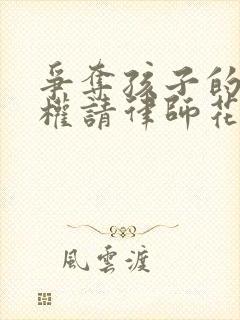 爭奪孩子的
權請律師花
風雲渡